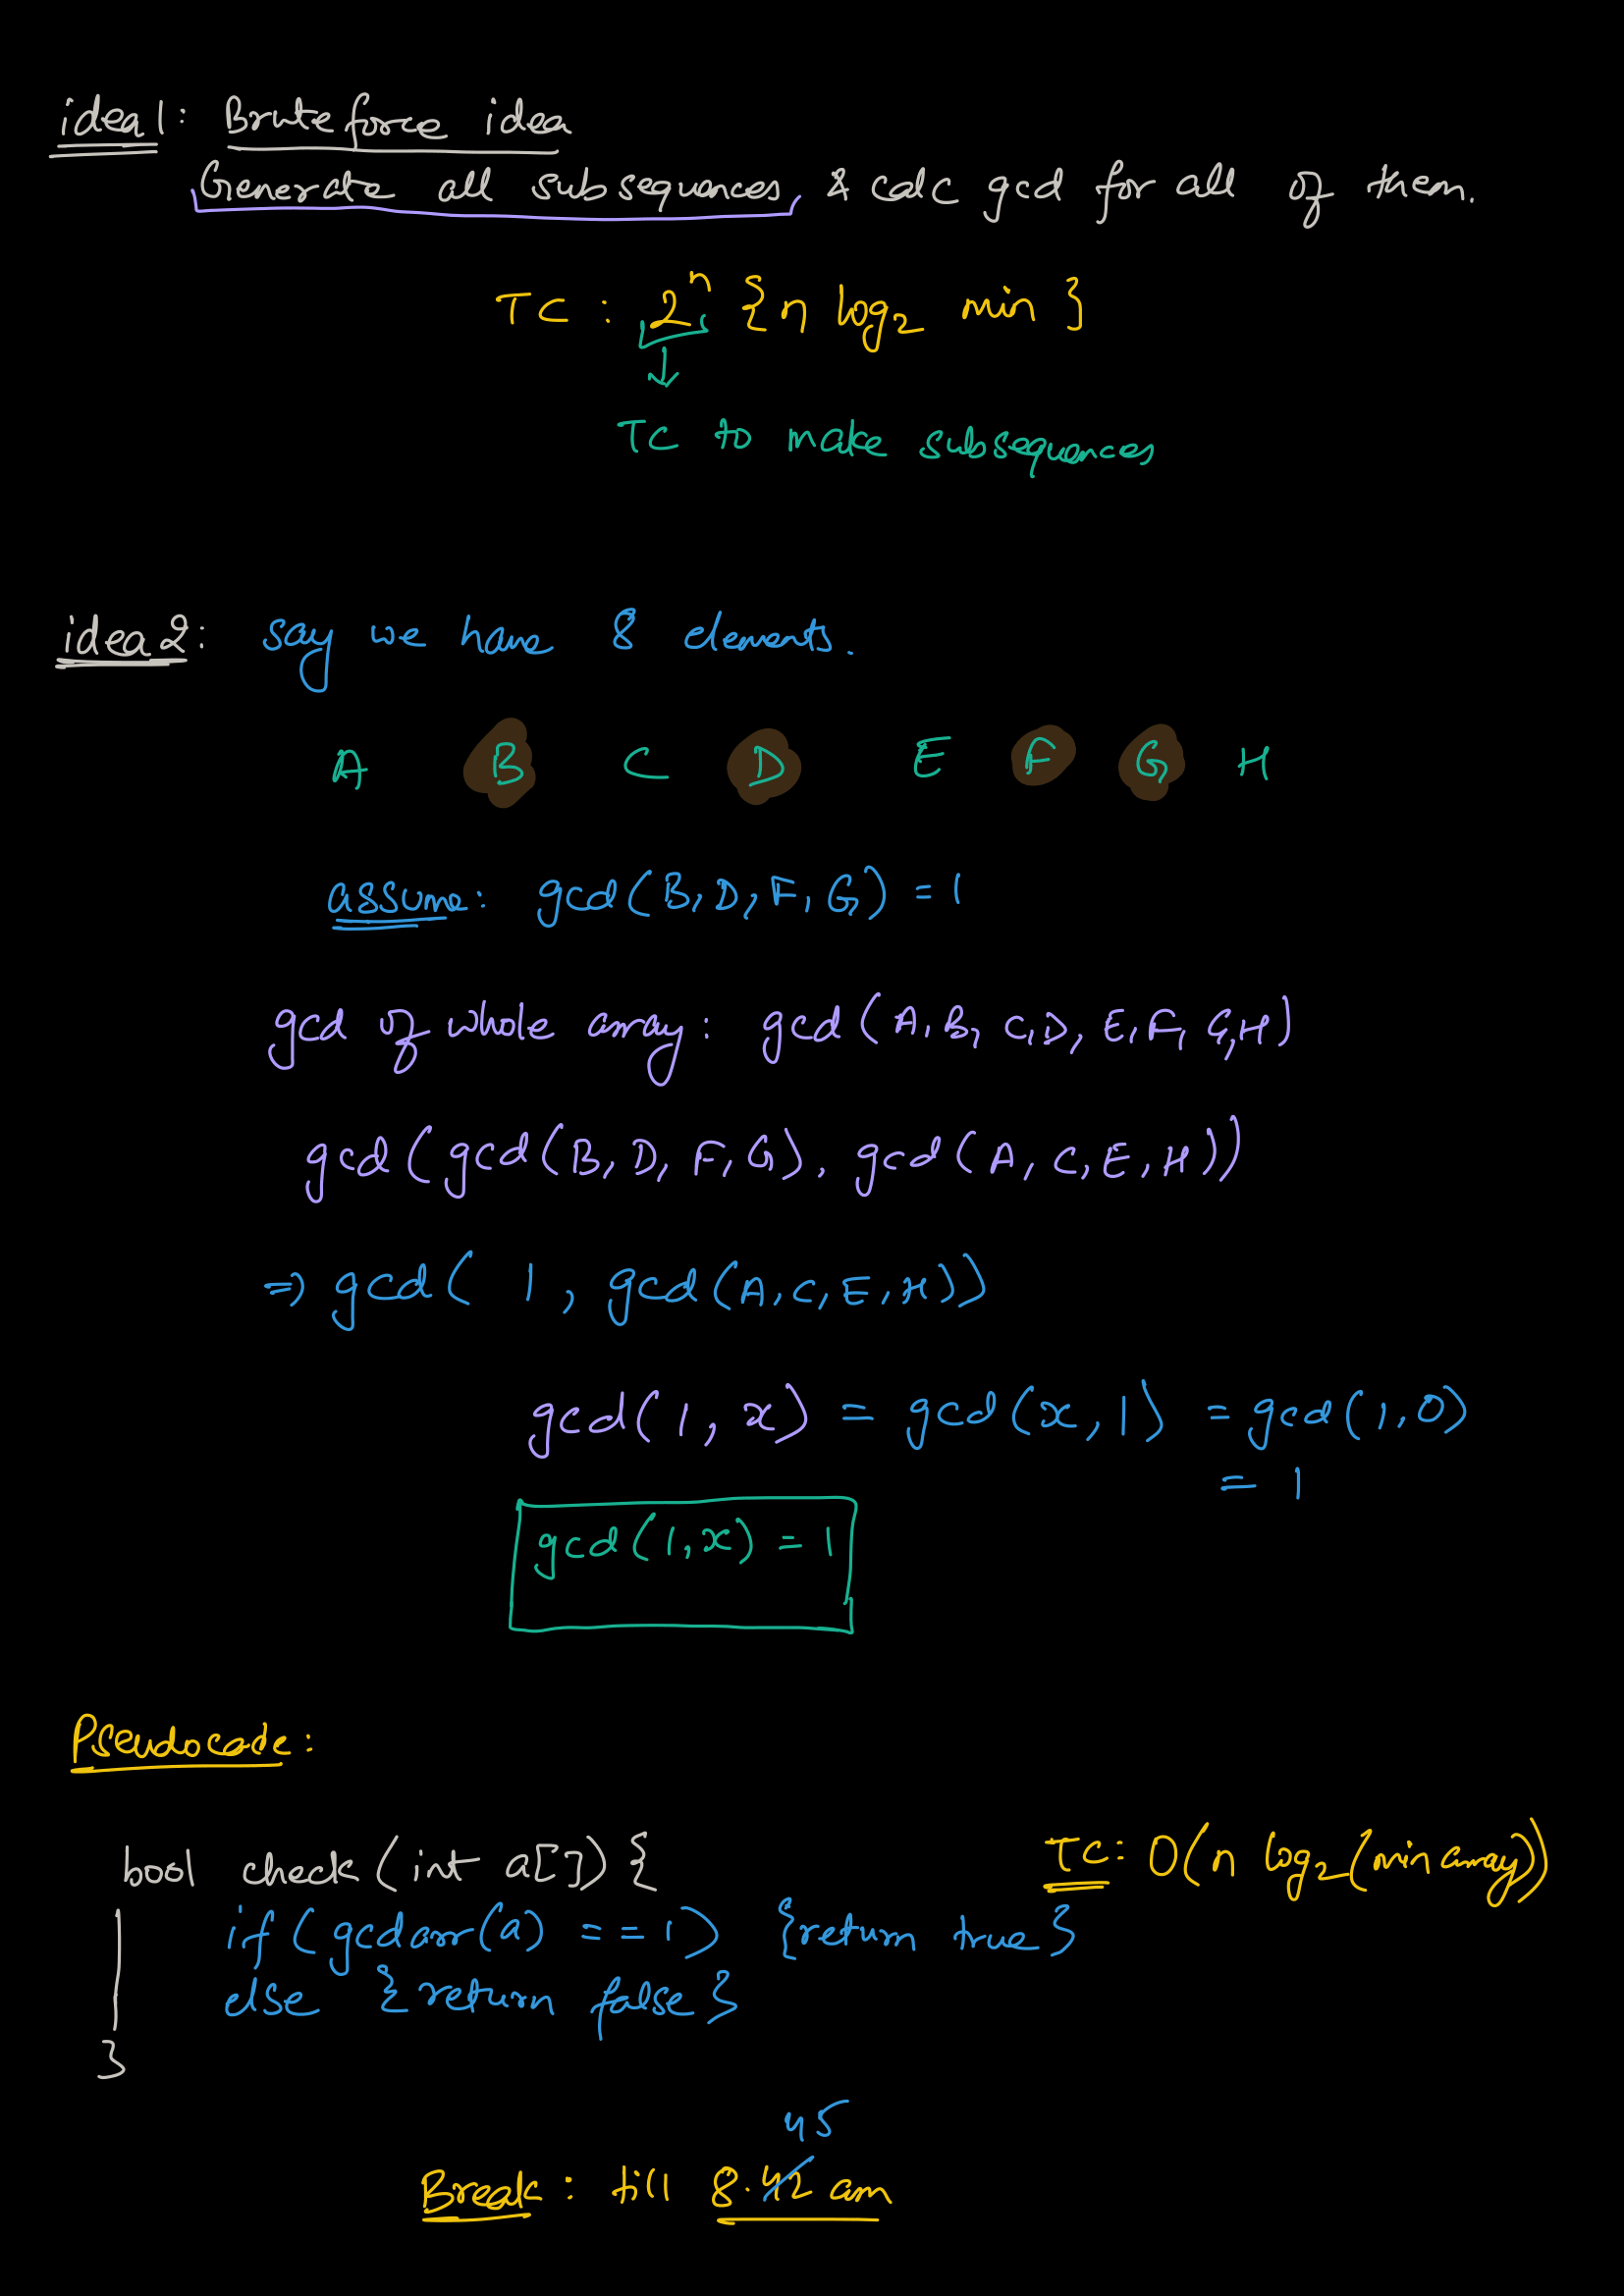 idea1: Bruteforce idea
Generate all subsequances, & calc gcd for all of them.
TC : 2^n {n log₂ min}
↓
TC to make subsequances
idea2: say we have 8 elements.
A B C D E F G H
assume: gcd(B, D, F, G) = 1
gcd of whole array: gcd(A, B, C, D, E, F, G, H)
gcd(gcd(B, D, F, G), gcd(A, C, E, H))
⇒ gcd( 1, gcd(A, C, E, H))
gcd(1, x) = gcd(x, 1) = gcd(1, 0)
= 1
gcd(1, x) = 1
Pseudocode:
bool check(int a[]) { TC: O(n log₂(min array))
if (gcdarr(a) == 1) {return true}
else {return false}
}
45
Break: till 8.42 am